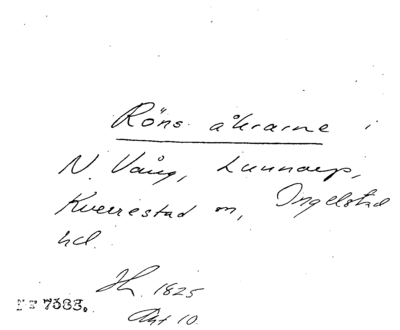 Röns åkrarne i
N. Vång, Lunnarp,
Kverrestad sn, Ingelstad
hd.
1825
Akt 10.
NF 7383.